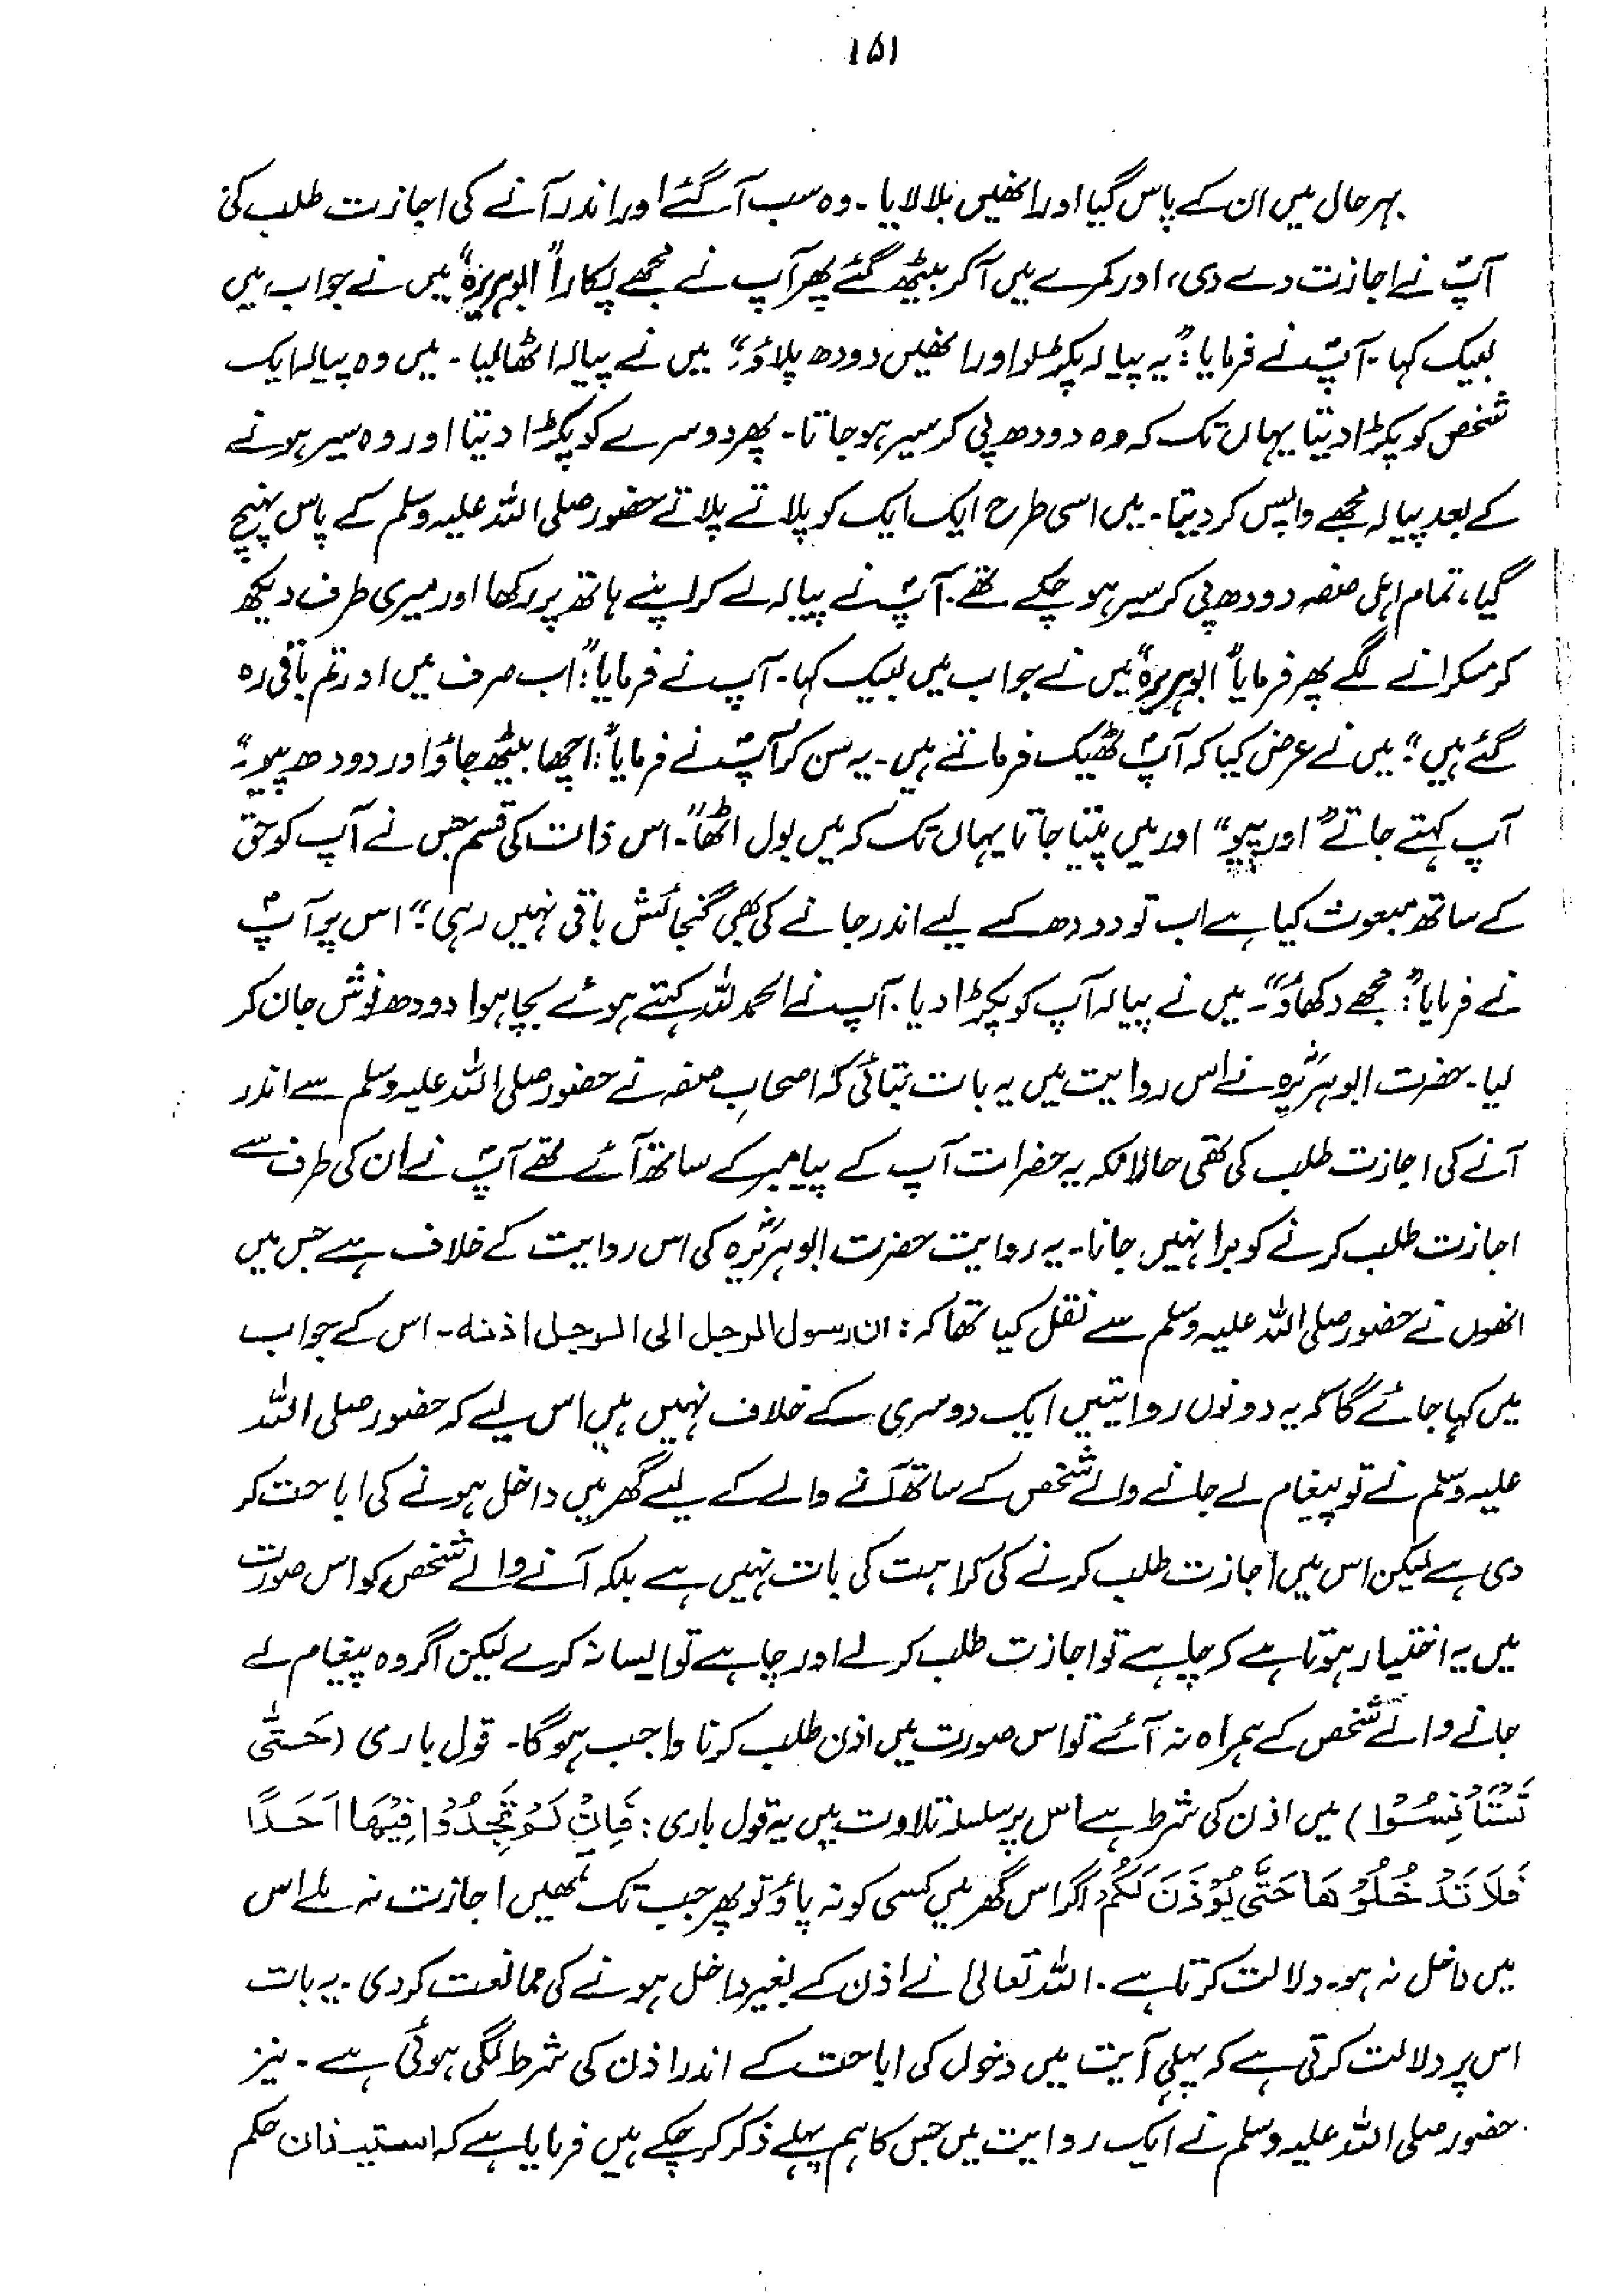 ۱۵۱
بہرحال میں ان کے پاس گیا اور انھیں بلا لایا۔ وہ سب آ گئے اور اندر آنے کی اجازت طلب کی
آپؐ نے اجازت دے دی، اور کمرے میں آ کر بیٹھ گئے پھر آپ نے مجھے پکارا "ابوہریرہ" میں نے جواب میں
لبیک کہا۔ آپؐ نے فرمایا: "یہ پیالہ پکڑ لو اور انھیں دودھ پلاؤ"۔ میں نے پیالہ اٹھا لیا۔ میں وہ پیالہ ایک
شخص کو پکڑا دیتا یہاں تک کہ وہ دودھ پی کر سیر ہو جاتا۔ پھر دوسرے کو پکڑا دیتا اور وہ سیر ہونے
کے بعد پیالہ مجھے واپس کر دیتا۔ میں اسی طرح ایک ایک کو پلاتے پلاتے حضور صلی اللہ علیہ وسلم کے پاس پہنچ
گیا، تمام اہل صفہ دودھ پی کر سیر ہو چکے تھے۔ آپؐ نے پیالہ لے کر اپنے ہاتھ پر رکھا اور میری طرف دیکھ
کر مسکرانے لگے پھر فرمایا "ابوہریرہ" میں نے جواب میں لبیک کہا۔ آپ نے فرمایا: "اب صرف میں اور تم باقی رہ
گئے ہیں"۔ میں نے عرض کیا کہ آپؐ ٹھیک فرماتے ہیں۔ یہ سن کر آپؐ نے فرمایا: "اچھا بیٹھ جاؤ اور دودھ پیو"۔
آپ کہتے جاتے "اور پیو" اور میں پیتا جاتا یہاں تک کہ میں بول اٹھا"۔ اس ذات کی قسم جس نے آپ کو حق
کے ساتھ مبعوث کیا ہے اب تو دودھ کے لیے اندر جانے کی بھی گنجائش باقی نہیں رہی"۔ اس پر آپؐ
نے فرمایا: "مجھے دکھاؤ"۔ میں نے پیالہ آپ کو پکڑا دیا۔ آپ نے الحمدللہ کہتے ہوئے بچا ہوا دودھ نوش جان کر
لیا۔ حضرت ابوہریرہؓ نے اس روایت میں یہ بات بتائی کہ اصحابِ صفہ نے حضور صلی اللہ علیہ وسلم سے اندر
آنے کی اجازت طلب کی تھی حالانکہ یہ حضرات آپ کے پیامبر کے ساتھ آئے تھے آپؐ نے ان کی طرف سے
اجازت طلب کرنے کو برا نہیں جانا۔ یہ روایت حضرت ابوہریرہؓ کی اس روایت کے خلاف ہے جس میں
انھوں نے حضور صلی اللہ علیہ وسلم سے نقل کیا تھا کہ: ان رسول الرجل الی الرجل اذنه۔ اس کے جواب
میں کہا جائے گا کہ یہ دونوں روایتیں ایک دوسری کے خلاف نہیں ہیں اس لیے کہ حضور صلی اللہ
علیہ وسلم نے تو پیغام لے جانے والے شخص کے ساتھ آنے والے کے لیے گھر میں داخل ہونے کی اباحت کر
دی ہے لیکن اس میں اجازت طلب کرنے کی کراہت کی بات نہیں ہے بلکہ آنے والے شخص کو اس صورت
میں یہ اختیار ہوتا ہے کہ چاہے تو اجازت طلب کر لے اور چاہے تو ایسا نہ کرے لیکن اگر وہ پیغام لے
جانے والے شخص کے ہمراہ نہ آئے تو اس صورت میں اذن طلب کرنا واجب ہوگا۔ قول باری (حَتّٰی
تَسْتَأْنِسُوْا) میں اذن کی شرط ہے اس پر سلسلۂ تلاوت میں یہ قول باری: فَاِنْ لَّمْ تَجِدُوْا فِیْهَا اَحَدًا
فَلَا تَدْخُلُوْهَا حَتّٰی یُؤْذَنَ لَكُمْ (اگر اس گھر میں کسی کو نہ پاؤ تو پھر جب تک تمھیں اجازت نہ ملے اس
میں داخل نہ ہو۔ دلالت کرتا ہے۔ اللہ تعالیٰ نے اذن کے بغیر داخل ہونے کی ممانعت کر دی۔ یہ بات
اس پر دلالت کرتی ہے کہ پہلی آیت میں دخول کی اباحت کے اندر اذن کی شرط لگی ہوئی ہے۔ نیز
حضور صلی اللہ علیہ وسلم نے ایک روایت میں جس کا ہم پہلے ذکر کر چکے ہیں فرمایا ہے کہ استیذان حکم